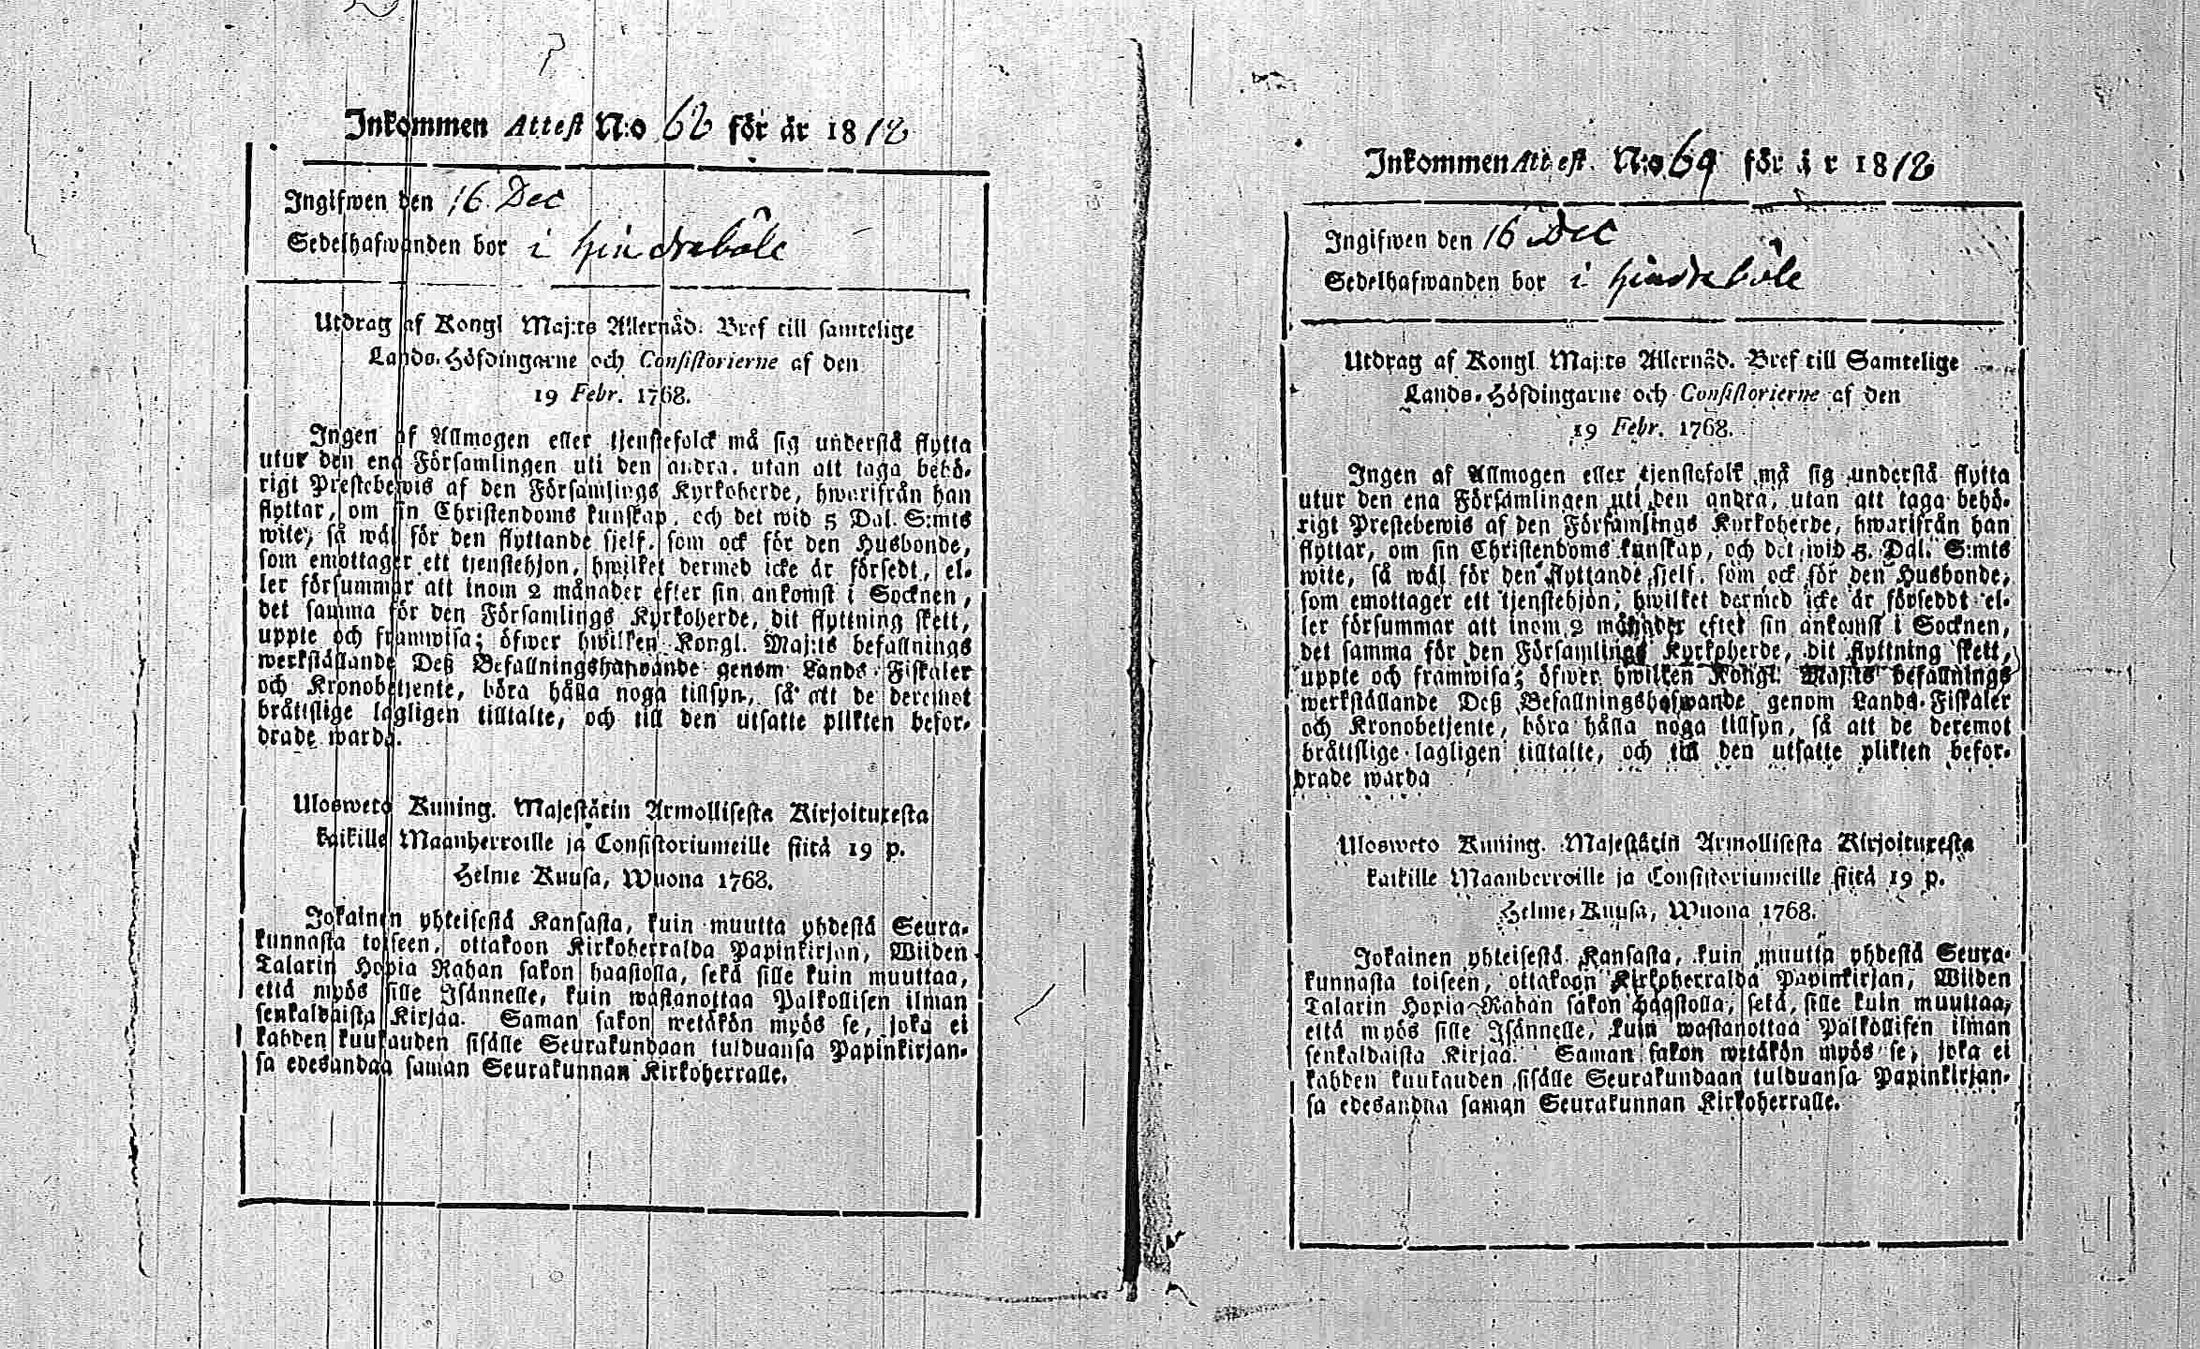 Inkommen Attest N:o 68 för år 1818
Ingifwen den 16 Dec
Sedelhafwanden bor i Hindrabôle
Utdrag af Kongl Maj:ts Allernåd. Bref till samtelige
Lands-Höfdingarne och Consistorierne af den
19 Febr. 1768.
Ingen af Allmogen eller tjenstefolck må sig understå flytta
utur den ena Församlingen uti den andra, utan att taga behö-
rigt Prestebewis af den Församlings Kyrkoherde, hwarifrån han
flyttar, om sin Christendoms kunskap, och det wid 5 Dal. S:mts
wite, så wäl för den flyttande sjelf, som ock för den Husbonde,
som emottager ett tjenstehjon, hwilket dermed icke är försedt, el-
ler försummar att inom 2 månader efter sin ankomst i Socknen,
det samma för den Församlings Kyrkoherde, dit flyttning skett,
uppte och framwisa; öfwer hwilken Kongl. Maj:ts befallnings
werkställande Deß Befallningshafwande genom Lands-Fiskaler
och Kronobetjente, böra hålla noga tillsyn, så att de deremot
bråttslige lagligen tilltalte, och till den utsatte plikten befor-
drade warda.
Ulosweto Kuning. Majestätin Armollisesta Kirjoituxesta
kaikille Maanherroille ja Consistoriumeille siitä 19 p.
Helme Kuusa, Wuona 1768.
Jokainen yhteisestä Kansasta, kuin muutta yhdestä Seura-
kunnasta toiseen, ottakoon Kirkoherralda Papinkirjan, Wiiden
Talarin Hopia Rahan sakon haastolla, sekä sille kuin muuttaa,
että myös sille Isännelle, kuin wastanottaa Palkollisen ilman
senkaldaista Kirjaa. Saman sakon wetäkön myös se, joka ei
kahden kuukauden sisälle Seurakundaan tulduansa Papinkirjan-
sa edesandaa saman Seurakunnan Kirkoherralle.
Inkommen Attest. N:o 69 för år 1818
Ingifwen den 16 Dec
Sedelhafwanden bor i Hindrabôle
Utdrag af Kongl Maj:ts Allernåd. Bref till Samtelige
Lands-Höfdingarne och Consistorierne af den
19 Febr. 1768.
Ingen af Allmogen eller tjenstefolk må sig understå flytta
utur den ena Församlingen uti den andra, utan att taga behö-
rigt Prestebewis af den Församlings Kyrkoherde, hwarifrån han
flyttar, om sin Christendoms kunskap, och det wid 5. Dal. S:mts
wite, så wäl för den flyttande sjelf, som ock för den Husbonde,
som emottager ett tjenstehjon, hwilket dermed icke är förseddt el-
ler försummar att inom 2 månader efter sin ankomst i Socknen,
det samma för den Församlings Kyrkoherde, dit flyttning skett,
uppte och framwisa; öfwer hwilken Kongl. Maj:ts befallnings
werkställande Deß Befallningshafwande genom Lands-Fiskaler
och Kronobetjente, böra hålla noga tillsyn, så att de deremot
bråttslige lagligen tilltalte, och till den utsatte plikten befor-
drade warda
Ulosweto Kuning. Majestätin Armollisesta Kirjoituxesta
kaikille Maanherroille ja Consistoriumeille siitä 19 p.
Helme, Kuusa, Wuona 1768.
Jokainen yhteisestä Kansasta, kuin muutta yhdestä Seura-
kunnasta toiseen, ottakoon Kirkoherralda Papinkirjan, Wiiden
Talarin Hopia Rahan sakon haastolla, sekä, sille kuin muuttaa,
että myös sille Isännelle, kuin wastanottaa Palkollisen ilman
senkaldaista Kirjaa. Saman sakon wetäkön myös se, joka ei
kahden kuukauden sisälle Seurakundaan tulduansa Papinkirjan-
sa edesandaa saman Seurakunnan Kirkoherralle.